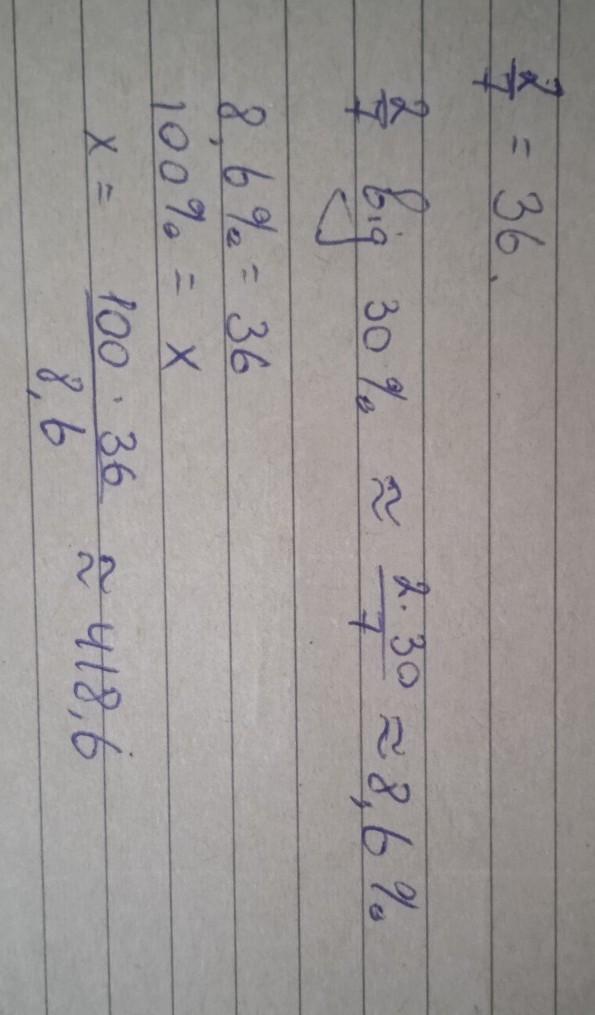 2/7 = 36.
2/7 від 30% ≈ 2·30/7 ≈ 8,6%
8,6% = 36
100% = x
x = 100·36/8,6 ≈ 418,6